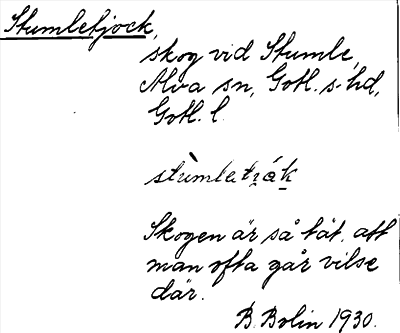 Stumletjock,
skog vid Stumle,
Alva sn, Gotl. s. hd,
Gotl. l.
stùmletȷák
Skogen är så tät, att
man ofta går vilse
där.
B. Bolin 1930.